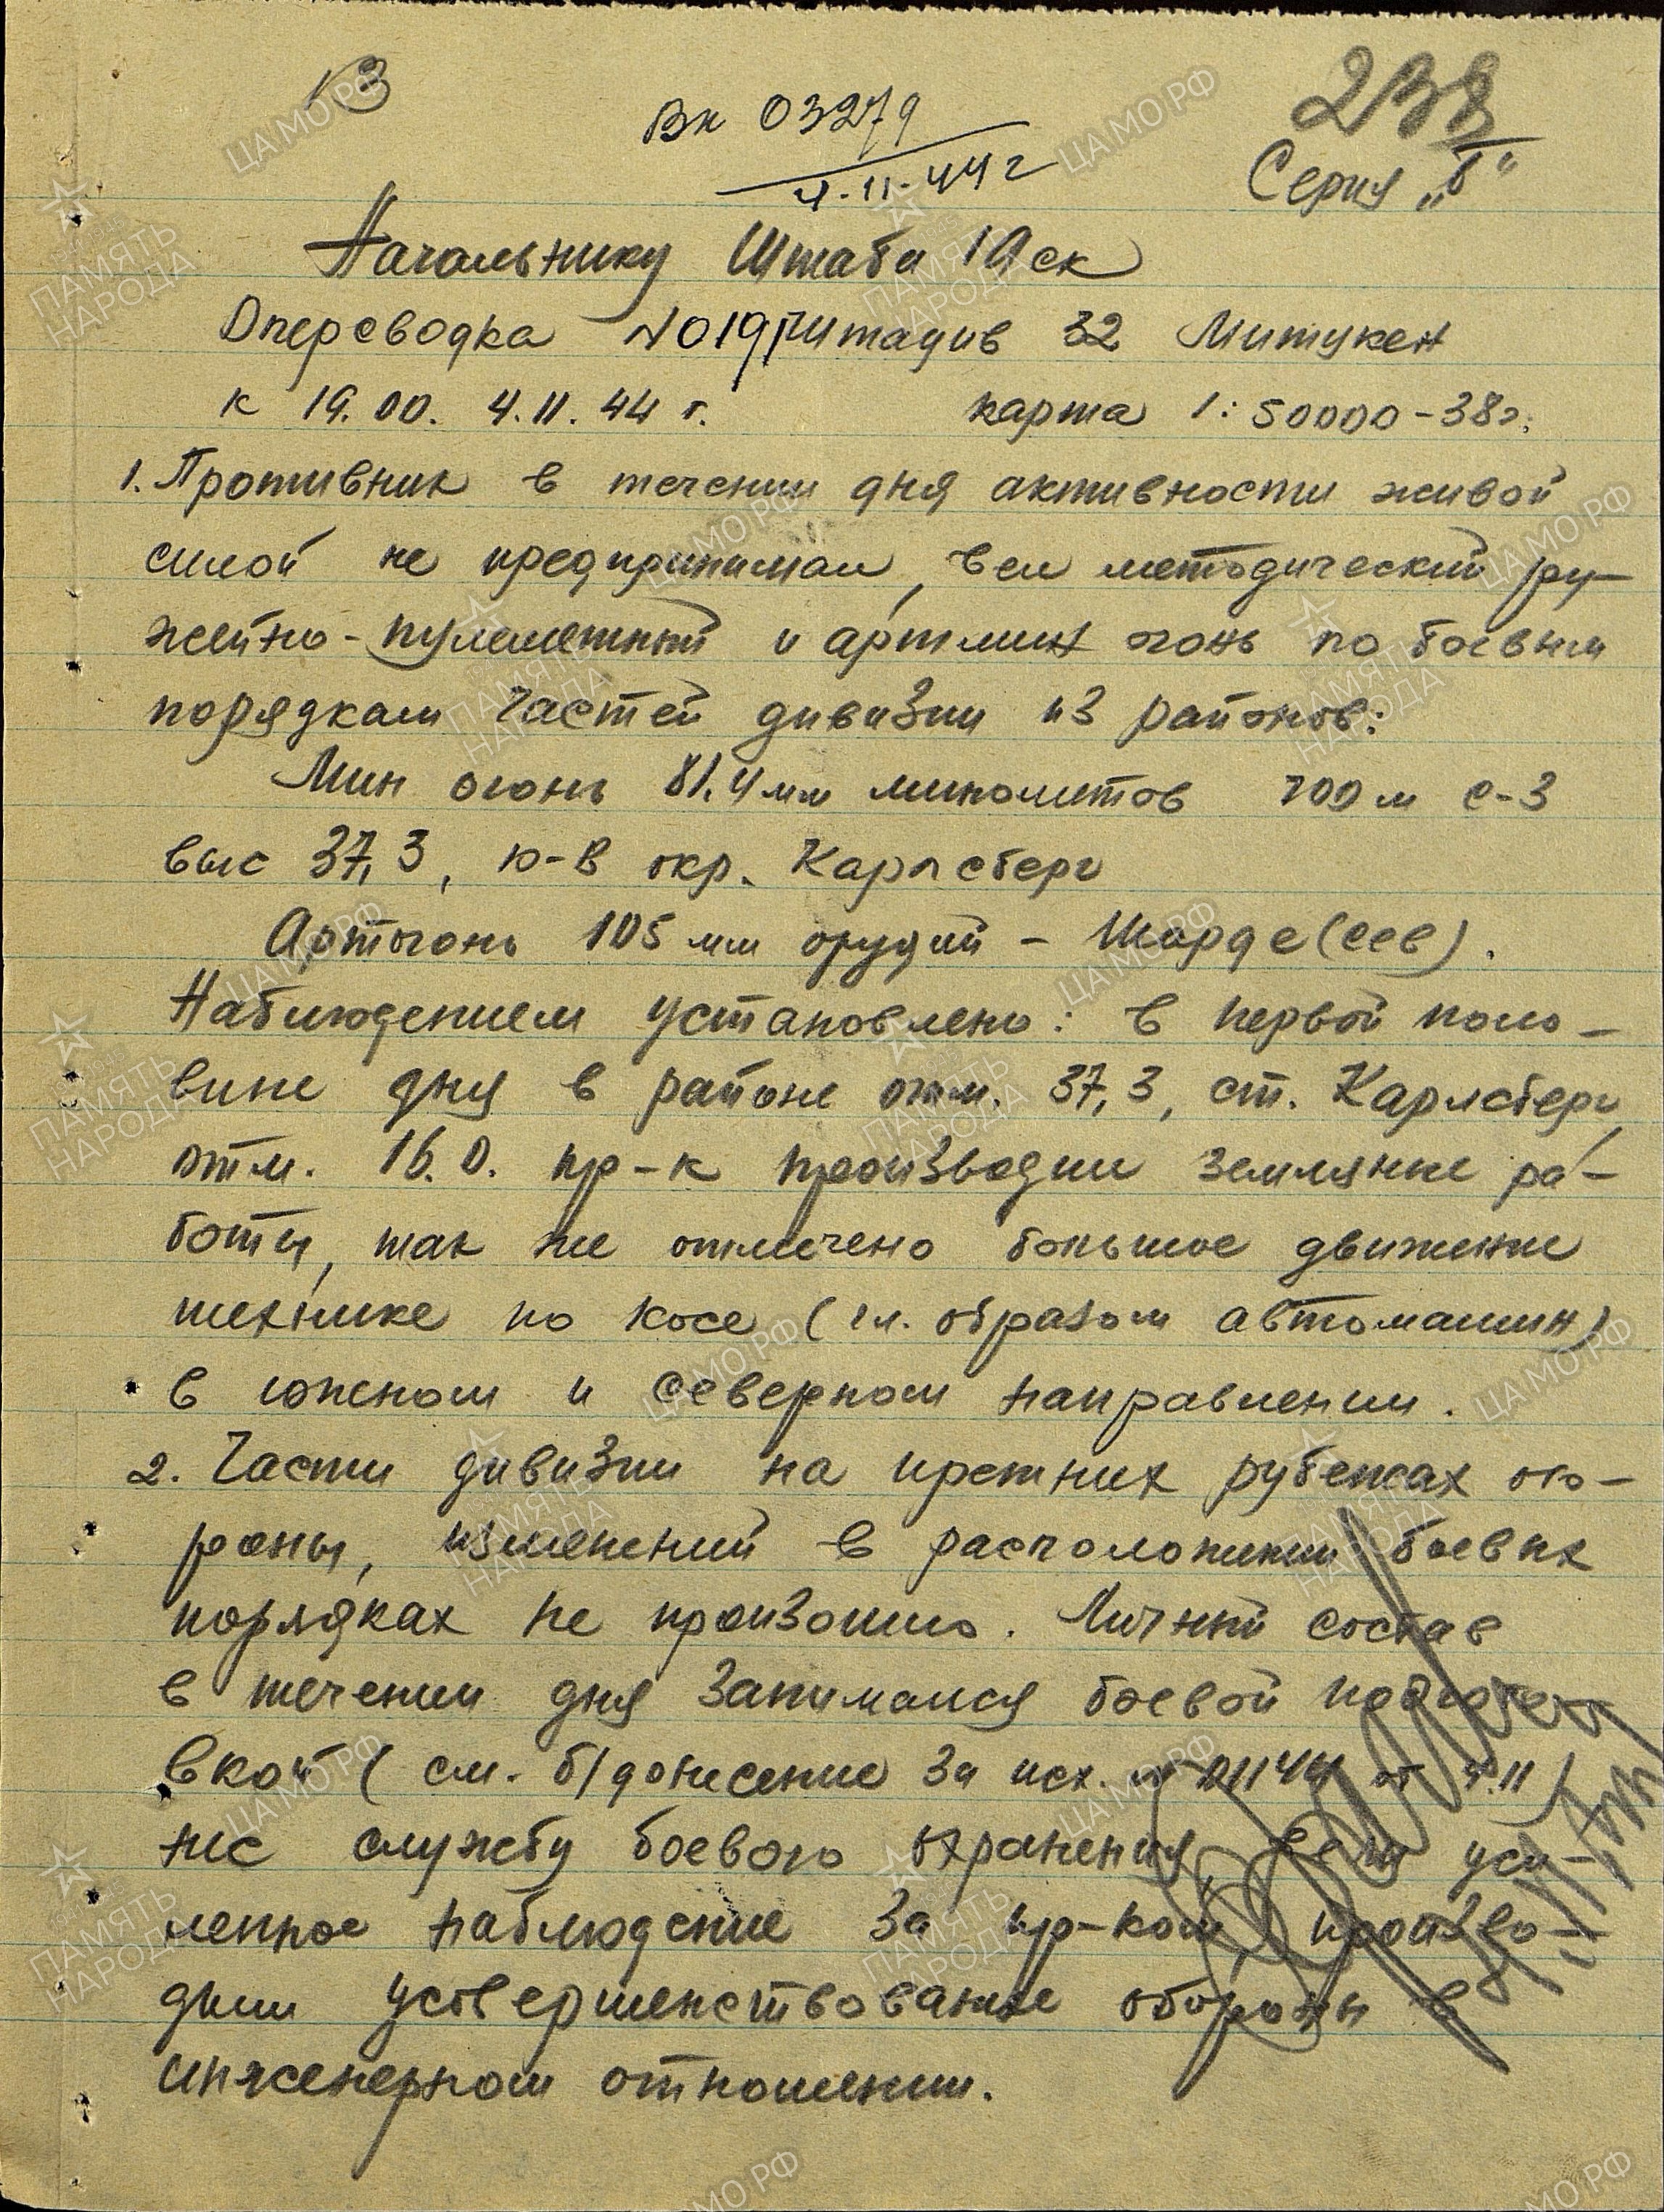 13
Вх 03279
4.11.44г
238
Серия „Б"
Начальнику Штаба 19 ск
Оперсводка №019 Штадив 32 Митукен
к 19.00. 4.11.44 г. карта 1:50000-38г.
1. Противник в течении дня активности живой
силой не предпринимал, вел методический ру-
жейно-пулеметный и артмин огонь по боевым
порядкам частей дивизии из районов:
Мин огонь 81,4мм минометов 700 м с-з
выс 37,3, ю-в окр. Карлсберг
Артогонь 105 мм орудий - Шарде (сев).
Наблюдением установлено: в первой поло-
вине дня в районе отм. 37,3, ст. Карлсберг,
отм. 16.0. пр-к производил земляные ра-
боты, так же отмечено большое движение
технике по косе (гл. образом автомашин)
в южном и северном направлении.
2. Части дивизии на прежних рубежах обо-
роны, изменений в расположении боевых
порядках не произошло. Личный состав
в течении дня занимался боевой подгото
вкой (см. б/донесение за исх. № 01144 от 4.11)
нес службу боевого охранения, вели уси-
ленное наблюдение за пр-ком, произво-
дили усовершенствование обороны в
инженерном отношении.
ЦАМО РФ
ПАМЯТЬ НАРОДА